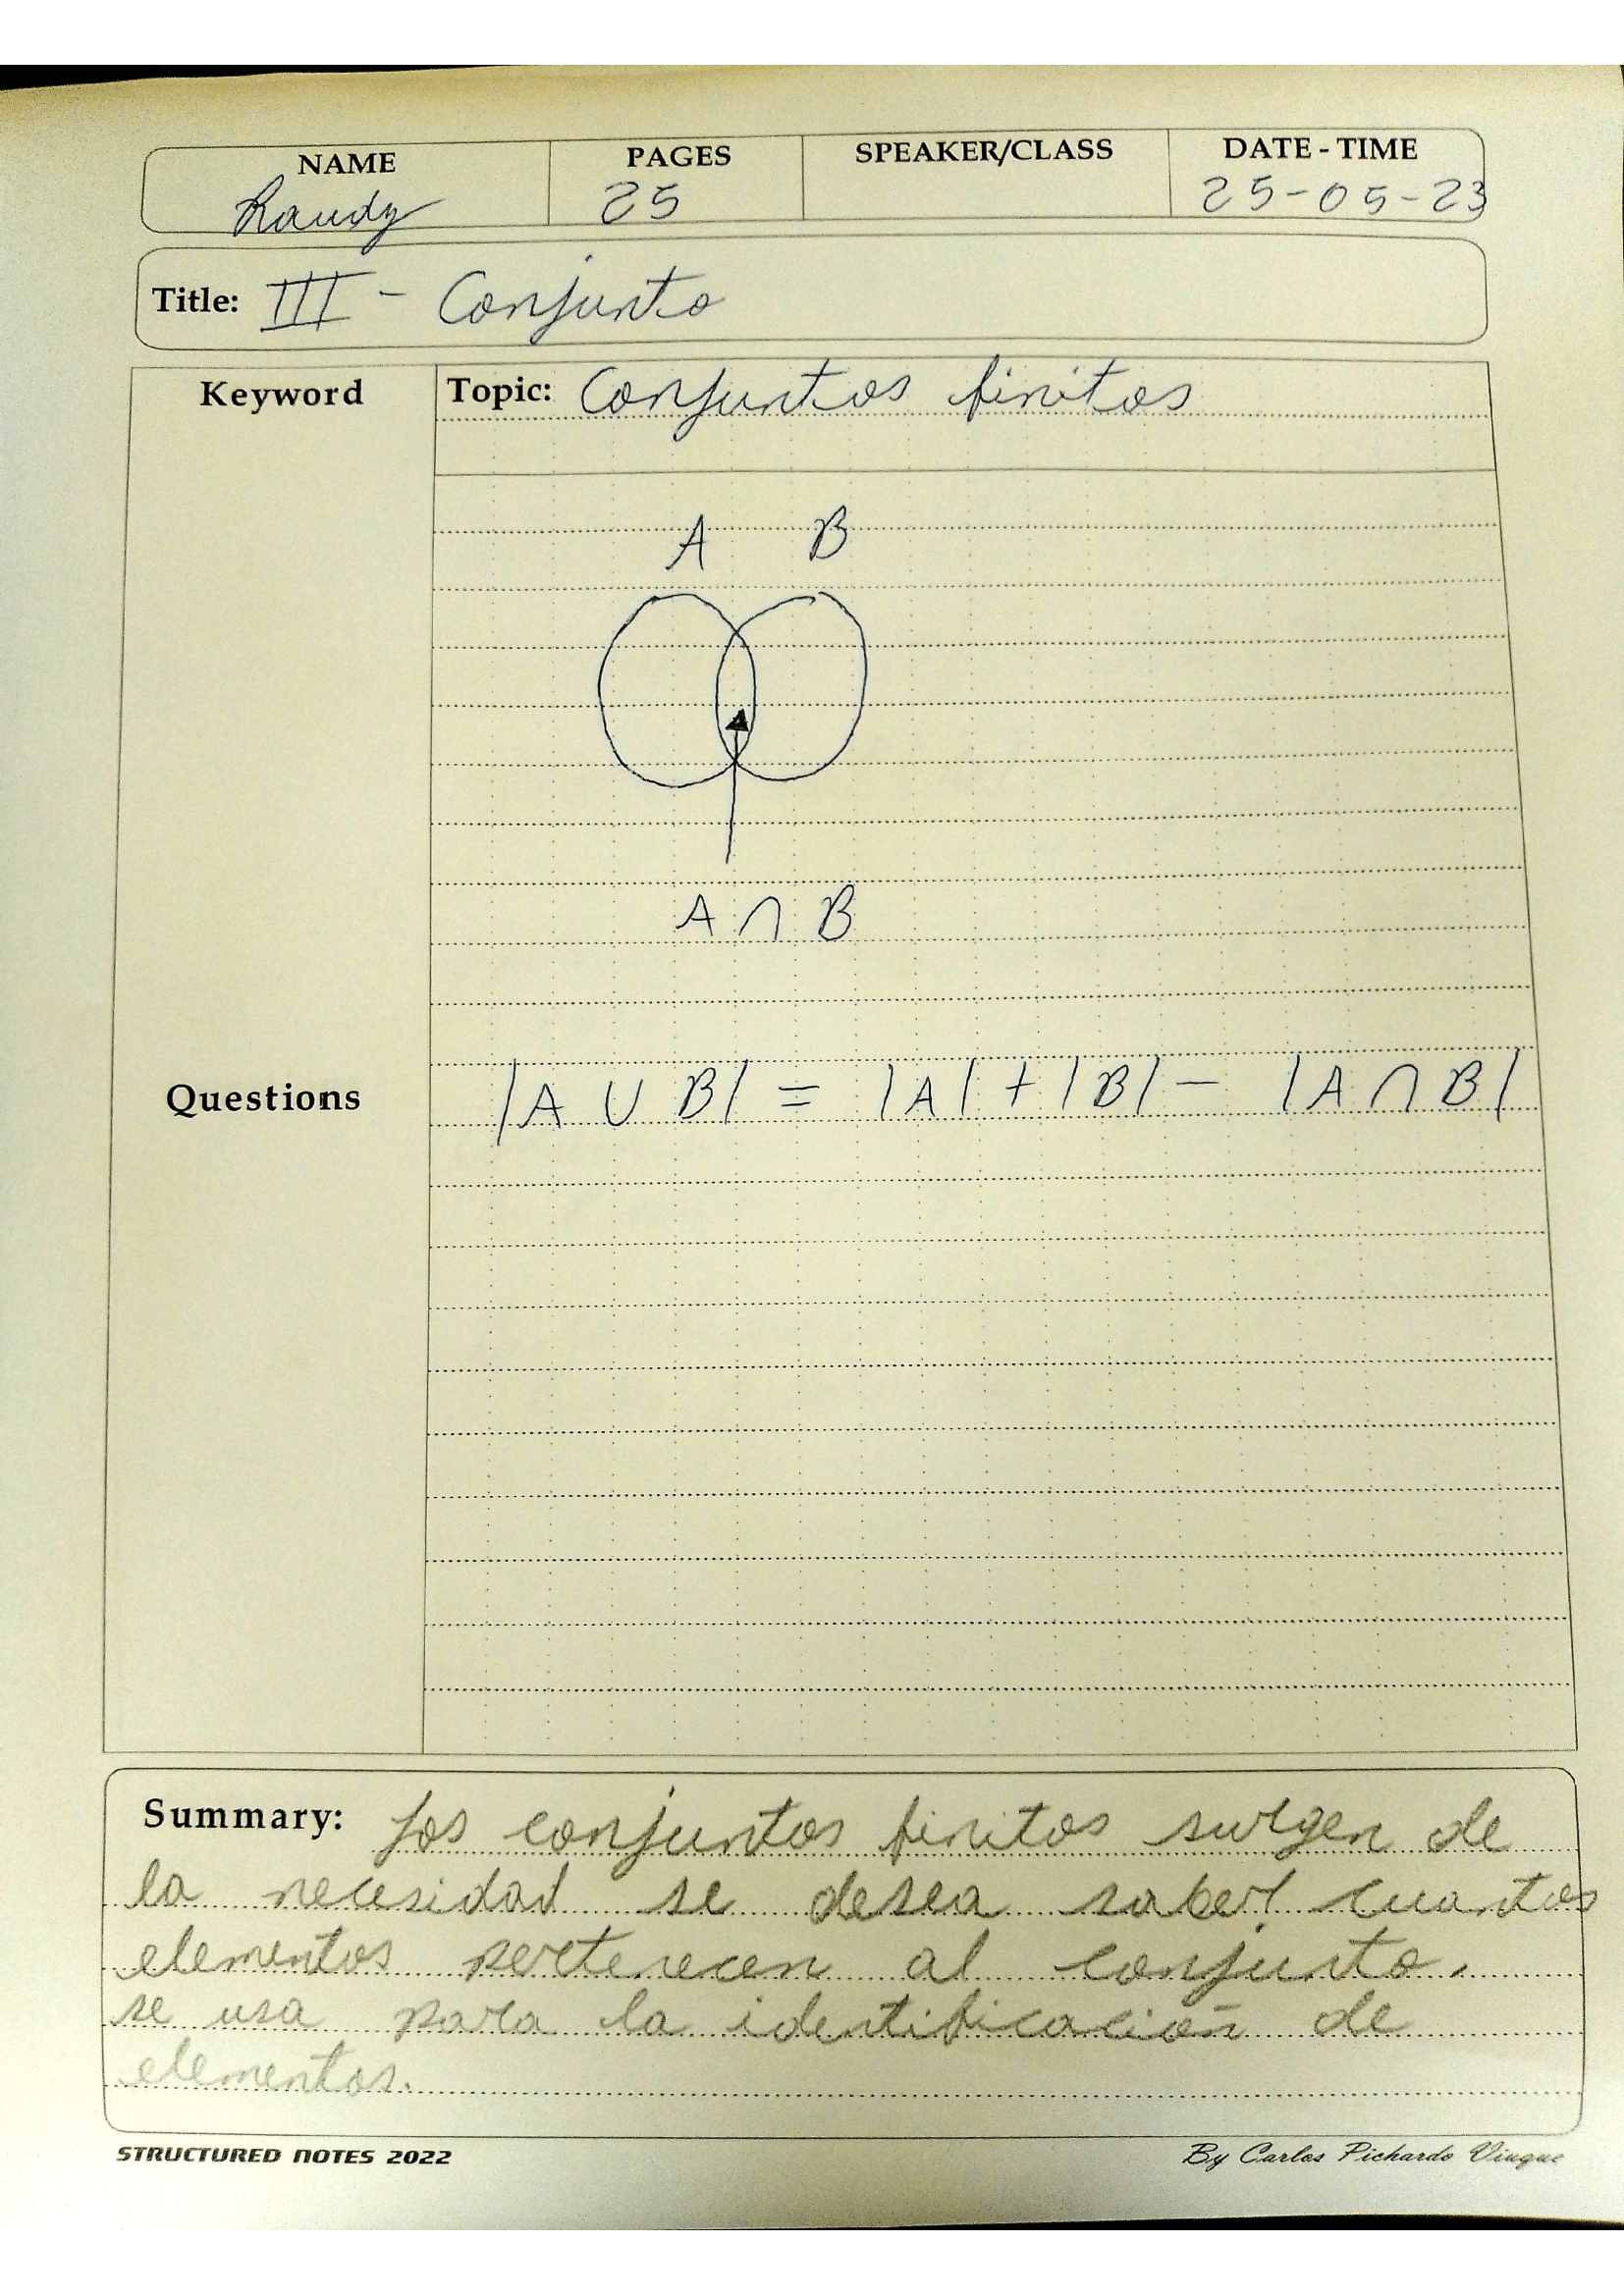 NAME PAGES SPEAKER/CLASS DATE - TIME
Randy 25 25-05-23
Title: III - Conjunto
Keyword Topic: Conjuntos finitos
A B
A ∩ B
Questions |A ∪ B| = |A| + |B| - |A ∩ B|
Summary: Los conjuntos finitos surgen de
la necesidad se desea saber cuantos
elementos pertenecen al conjunto.
se usa para la identificación de
elementos.
STRUCTURED NOTES 2022 By Carlos Pichardo Viuque